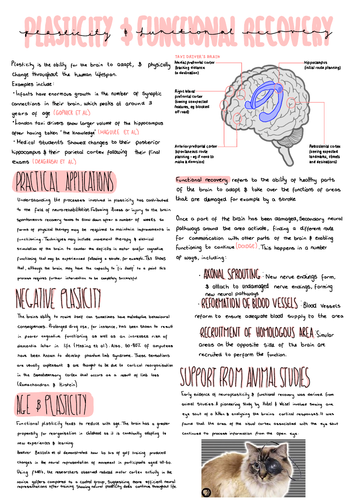 PLASTICITY + FUNCTIONAL RECOVERY
plasticity & functional recovery
Plasticity is the ability for the brain to adapt, & physically
change throughout the human lifespan.
Examples include:
• Infants have enormous growth in the number of synaptic
connections in their brain, which peaks at around 3
years of age (GOPNICK ET AL)
• London taxi drivers show larger volume of the hippocampus
after having taken 'the knowledge' (MAGUIRE ET AL)
• Medical students showed changes to their posterior
hippocampus & their parietal cortex following their final
exams (DRAGANSKI ET AL)
PRACTICAL APPLICATIONS
Understanding the processes involved in plasticity has contributed
to the field of neurorehabilitation. Following illness or injury to the brain
spontaneous recovery tends to slow down after a number of weeks so
forms of physical therapy may be required to maintain improvements in
functioning. Techniques may include movement therapy & electrical
stimulation of the brain to counter the deficits in motor and/or cognitive
functioning that may be experienced following a stroke, for example. This shows
that, although the brain may have the capacity to 'fix itself' to a point, this
process requires further intervention to be completely successful
NEGATIVE PLASTICITY
The brain's ability to rewire itself can sometimes have maladaptive behavioural
consequences. Prolonged drug use, for instance, has been shown to result
in poorer cognitive functioning as well as an increased risk of
dementia later in life (Medina et al). Also, 60-80% of amputees
have been known to develop phantom limb syndrome. These sensations
are usually unpleasant & are thought to be due to cortical reorganisation
in the somatosensory cortex that occurs as a result of limb loss
(Ramachandran & Hirstein)
AGE & PLASTICITY
Functional plasticity tends to reduce with age. The brain has a greater
propensity for reorganisation in childhood as it is continually adapting to
new experiences & learning.
However, Bezzola et al demonstrated how 40 hrs of golf training produced
changes in the neural representation of movement in participants aged 40-60.
Using fMRI, the researchers observed reduced motor cortex activity in the
novice golfers compared to a control group, suggesting more efficient neural
representations after training, showing neural plasticity does continue throughout life.
TAXI DRIVER'S BRAIN
Medial prefrontal cortex
(tracking distance
to destination)
Hippocampus
(initial route planning)
Right lateral
prefrontal cortex
(noticing unexpected
features, eg blocked
off road)
Anterior prefrontal cortex
(spontaneous route
planning - eg if route is
made & diversion)
Retrosplenial cortex
(noticing expected
landmarks, streets
and destinations)
Functional recovery refers to the ability of healthy parts
of the brain to adapt & take over the functions of areas
that are damaged, for example by a stroke
Once a part of the brain has been damaged, secondary neural
pathways around the area activate, finding a different route
for communication with other parts of the brain & enabling
functions to continue (DOIDGE). This happens in a number
of ways, including:
• AXONAL SPROUTING: New nerve endings form,
& attach to undamaged nerve endings, forming
new neural pathways
• REFORMATION OF BLOOD VESSELS: Blood vessels
reform to ensure adequate blood supply to the area
• RECRUITMENT OF HOMOLOGOUS AREA: Similar
areas on the opposite side of the brain are
recruited to perform the function.
SUPPORT FROM ANIMAL STUDIES
Early evidence of neuroplasticity & functional recovery was derived from
animal studies. A pioneering study by Hubel & Wiesel involved sewing one
eye shut of a kitten & analysing the brain's cortical responses. It was
found that the area of the visual cortex associated with the eye shut
continued to process information from the open eye.